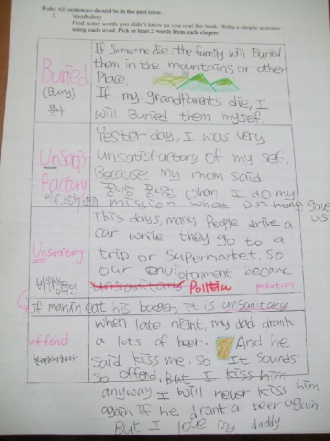 Rule: All sentences should be in the past tense.
1. Vocabulary
Find some words you didn't know as you read the book. Write a simple sentence
using each word. Pick at least 2 words from each chapter.
Buried
(Bury)
묻다
If Someone die, the family will Buried
them in the mountains or other
Place.
If my grandparents die, I
will Buried them myself
Unsatisfactory
Yesterday, I was very
unsatisfactory of my self.
Because, my mom said
when I do my
mission what
gave us
Unsanitary
비위생적인
This days, many people drive a
car while they go to a
trip or supermarket. So
our enviotnment became
unsanitary Polltein pollution
if manin eat his booger, it is unsanitary
offend
when late night, my dad drank
a lots of beer. And he
said kiss me. So It sounds
so offend, But I kiss him
anyway I will never kiss him
again if he drank a beer again.
But I love my daddy